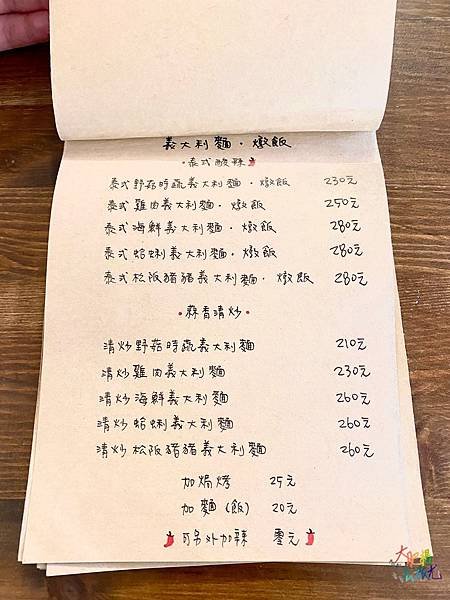 義大利麵．燉飯
•泰式酸辣
泰式野菇時蔬義大利麵．燉飯 230元
泰式雞肉義大利麵．燉飯 250元
泰式海鮮義大利麵．燉飯 280元
泰式蛤蜊義大利麵．燉飯 280元
泰式松阪豬豬義大利麵．燉飯 280元
•蒜香清炒•
清炒野菇時蔬義大利麵 210元
清炒雞肉義大利麵 230元
清炒海鮮義大利麵 260元
清炒蛤蜊義大利麵 260元
清炒松阪豬豬義大利麵 260元
加焗烤 25元
加麵(飯) 20元
可另外加辣 零元